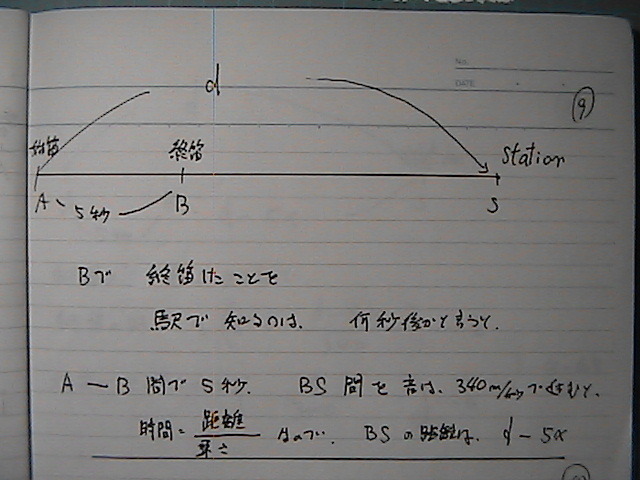 No.
DATE
9
d
始笛 終笛 Station
A 5秒 B S
Bで 終笛したことを
駅で知るのは、 何秒後かと言うと、
A ー B 間で 5秒. BS 間を 音は、 340m/秒で進むと、
時間 = 距離 / 速さ なので、 BSの距離は、 d - 5x